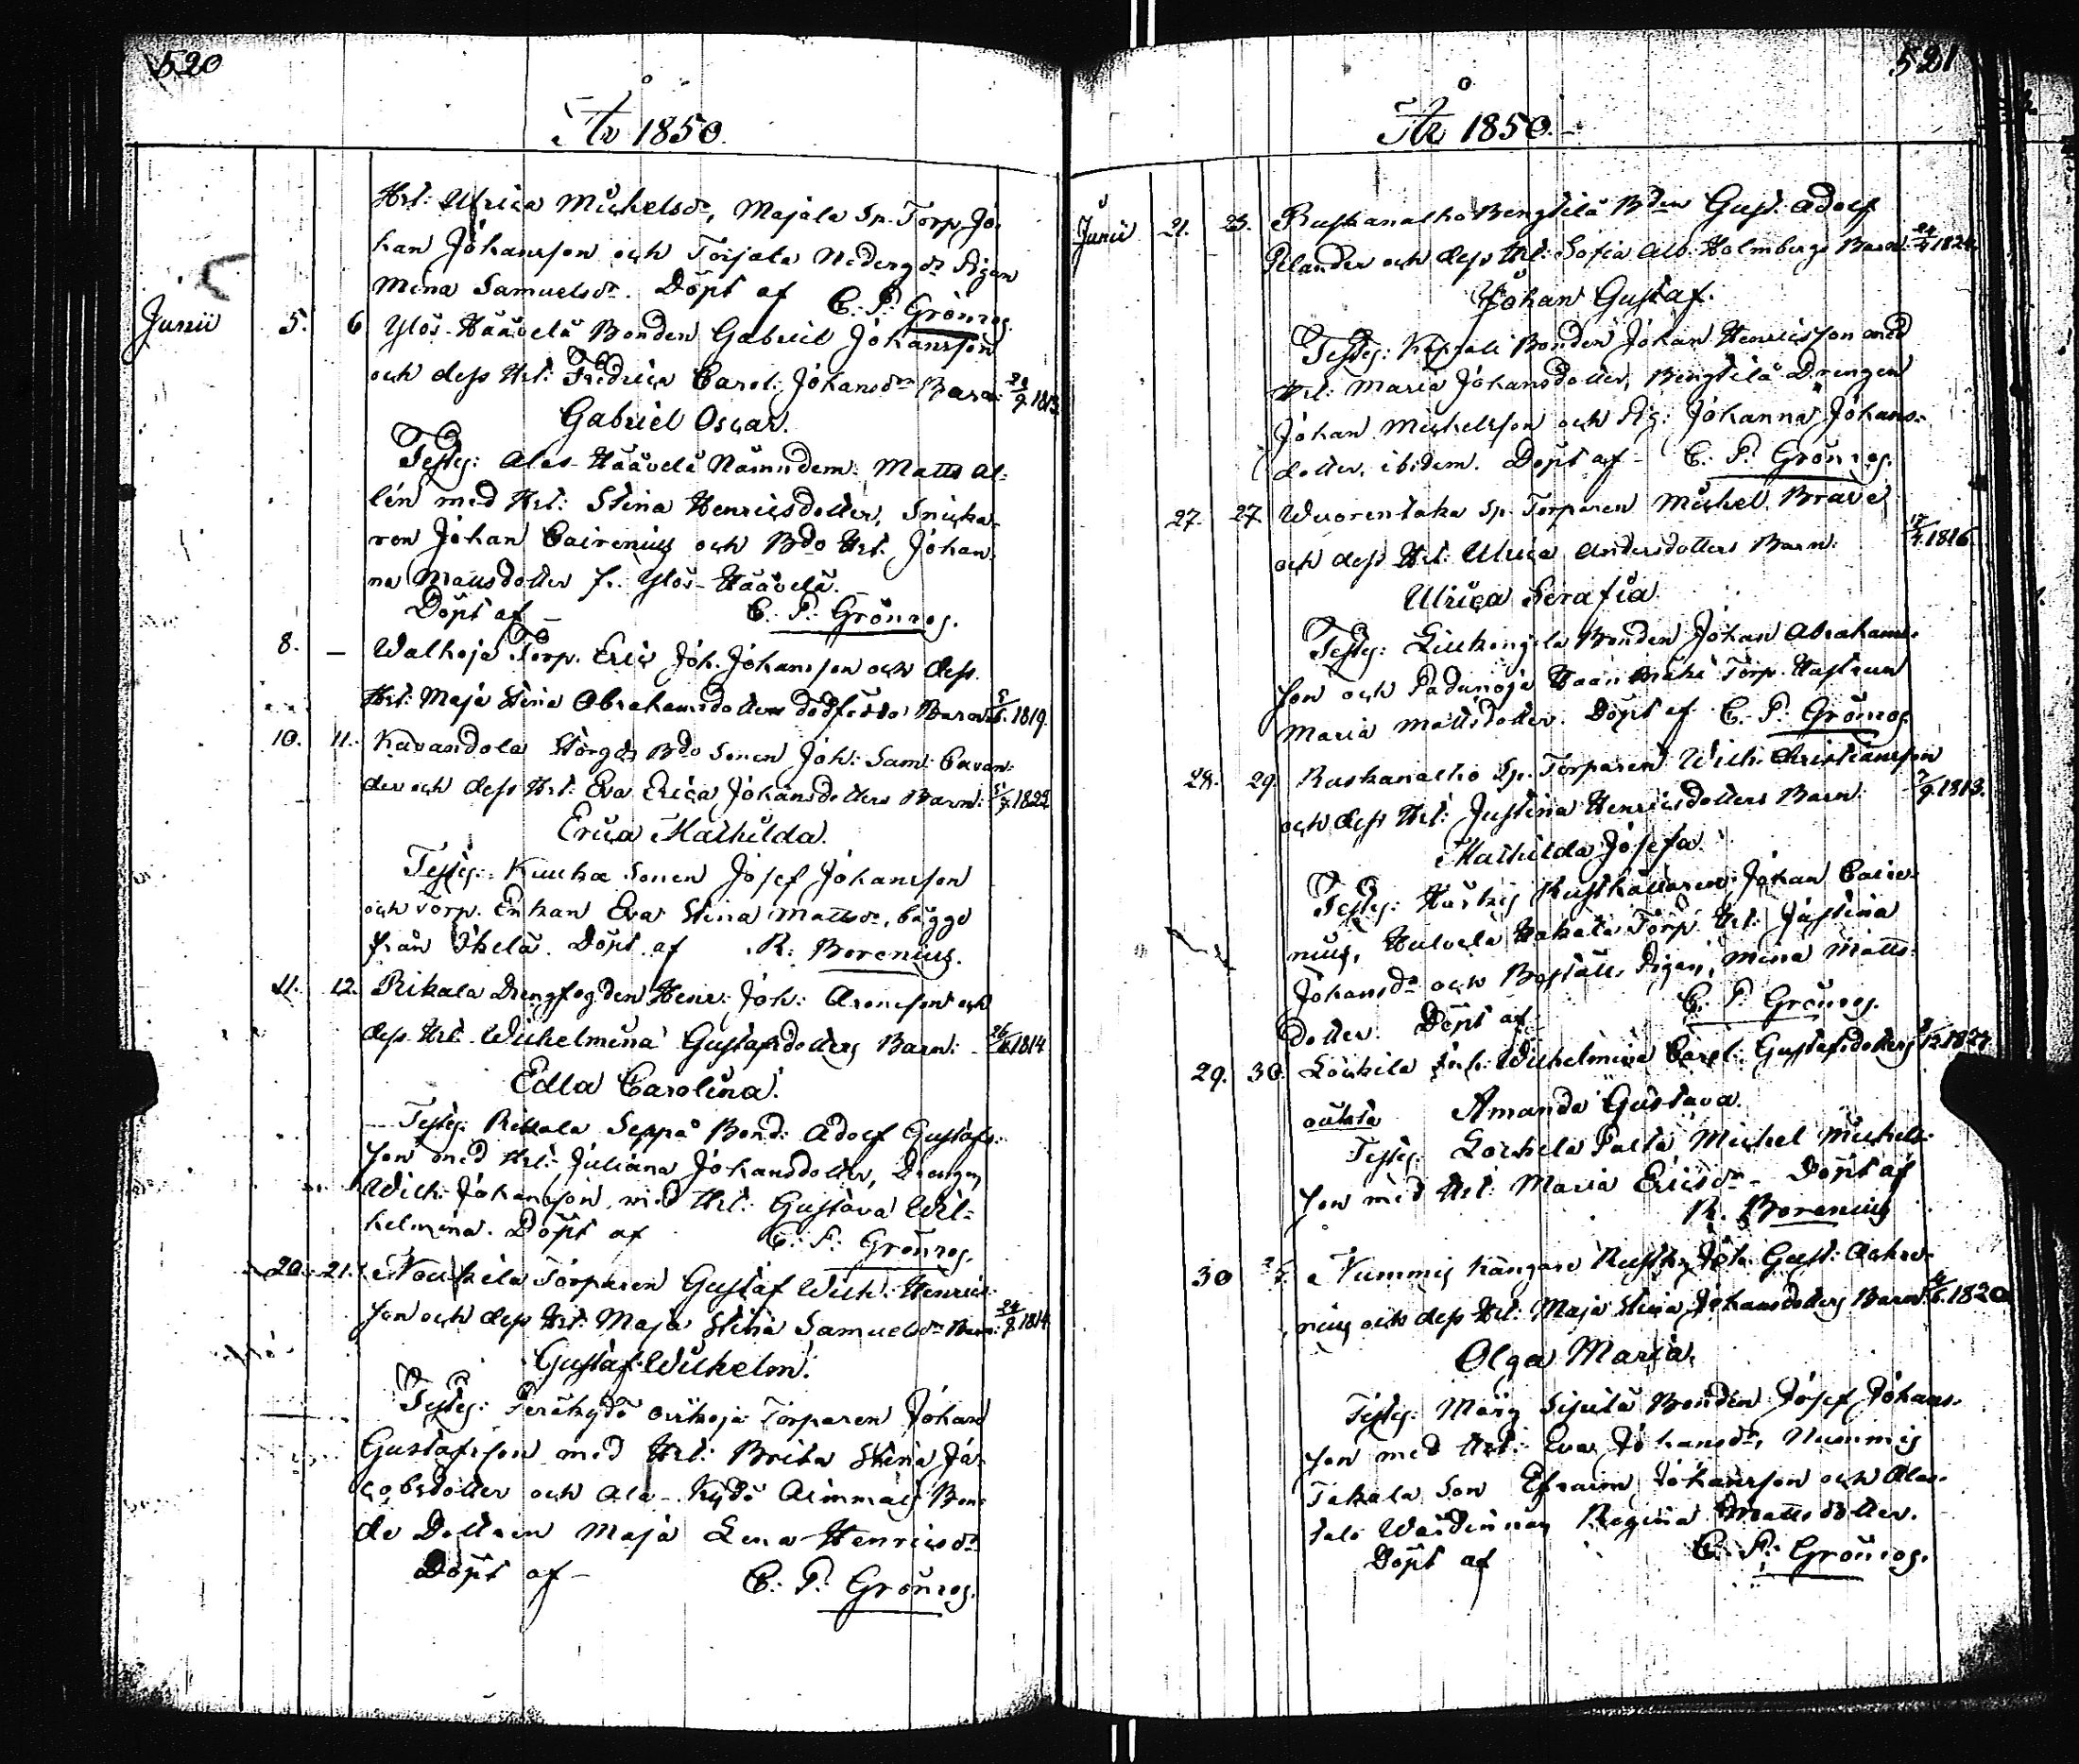 520
År 1850.
Hst: Ulrica Michelsdr, Majala Sp. Torp. Jo-
han Johansson och Torjala Nedergds Pigan
Mina Samuelsdr. Döpt af C. P. Grönros.
Junii 5. 6 Ylös-Häävelä Bonden Gabriel Johansson
och dess Hst: Fredrica Carol: Johansdrs Barn: 1813.
Gabriel Oscar.
Testes: Alas-Häävelä Nämndem: Matts Al-
lén med Hst: Stina Henricsdotter, Snicka-
ren Johan Cairenius och Bdo Hst: Johan-
na Mattsdotter fr. Ylös-Häävelä.
Döpt af – C. P. Grönros.
8. – Walkoja Torp. Eric Joh. Johansson och dess
Hst: Maja Stina Abrahamsdotters dödfödda Barn. 1819.
10. 11. Kavandola Storgds Bdo Sonen Joh: Sam: Cavan-
der och dess Hst: Eva Erica Johansdotters Barn: 1822
Erica Mathilda.
Testes: Kuuka Sonen Josef Johansson
och Torp. Enkan Eva Stina Mattsdr, bägge
från Skelä. Döpt af R. Borenius.
11. 12. Rikala Drengfogden Henr: Joh: Aronsson och
dess Hst. Wilhelmina Gustafsdotters Barn: 1814
Edla Carolina.
Testes: Rikala Seppä Bond: Adolf Gustafs-
son med Hst: Juliana Johansdotter, Drengen
Wilh: Johansson med Hst: Gustava Wil-
helmina. Döpt af C. P. Grönros.
20. 21. Noukela Torparen Gustaf Wilh. Henrics-
son och dess Hst: Maja Stina Samuelsdrs Barn: 1814
Gustaf Wilhelm.
Testes: Peräkydö Torparen Johan
Gustafsson med Hst: Brita Stina Ja-
cobsdotter och Ala-Kydö Bon-
de Dottren Maja Lena Henricsdr
Döpt af – C. P. Grönros.
521
År 1850.
Junii 21. 23. Ruskanalho Bengtilä Bden Gust. Adolf
Pelander och dess Hst: Sofia Alb. Holmbergs Barn. 1824.
Johan Gustaf.
Testes: Kappali Bonden Johan Henricsson med
Hst: Maria Johansdotter, Bengtilä Drengen
Johan Michelsson och Pig: Johanna Johans-
dotter, ibidem. Döpt af – C. P. Grönros.
27. 27. Wuorentaka Sp. Torparen Michel Brave
och dess Hst: Ulrica Andersdotters Barn: 1816.
Ulrica Serafia
Testes: Bonden Johan Abrahams-
son och Torp. Hustrun
Maria Mattsdotter. Döpt af C. P. Grönros
28. 29. Ruskanalho Sp. Torparen Wilh. Christiansson
och dess Hst: Justina Henricsdotters Barn: 1813.
Mathilda Josefa
Testes: Rusthållaren Johan Caire-
nius, Torp. Hst: Justina
Johansdr och Boställs Pigan Mina Matts-
dotter. Döpt af – C. P. Grönros.
29. 30. Wilhelmina Carol: Gustafsdotters 1827
oäkta Amanda Gustava.
Testes: Michel Michels-
son med Hst: Maria Ericsdr – Döpt af
R. Borenius
30 Nummis Kangare Rusth. Joh. Gust:
och dess Hst: Maja Stina Johansdotters Barn. 1820
Olga Maria.
Testes: Bonden Josef Johans-
son med Hst: Eva Johansdr, Nummis
Takala Son Efraim Johansson och Ala-
talo Wärdinnan Regina Mattsdotter.
Döpt af C. P. Grönros.